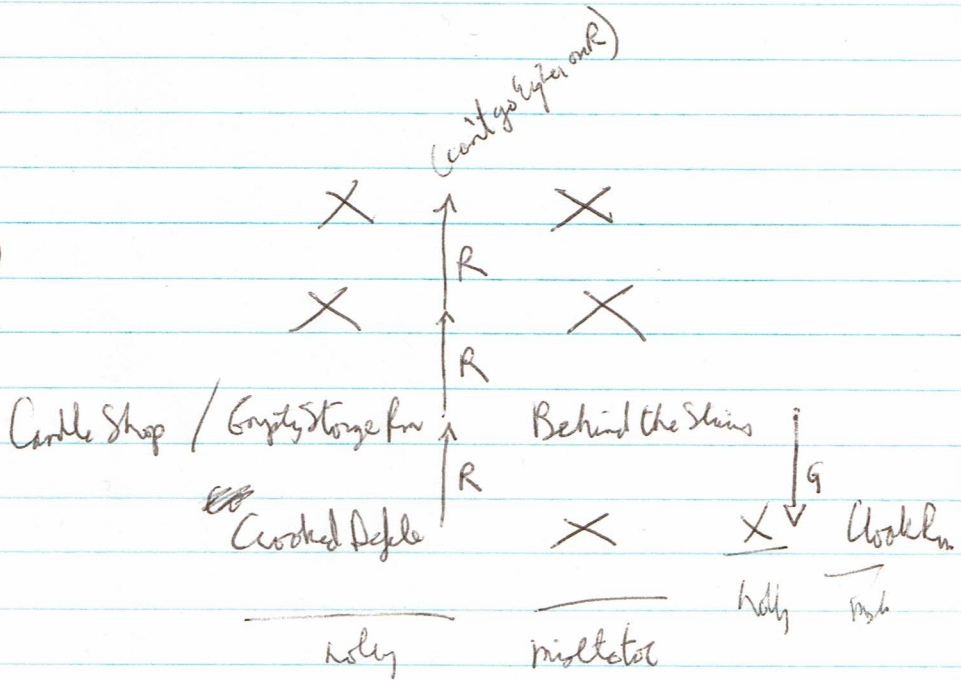 (can't go higher on R)
X X
R
X X
R
Candle Shop / Empty Storage Rm Behind the Stairs
R G
Crooked Defile X X Cloak Rm
holly mistletoe holly mistl